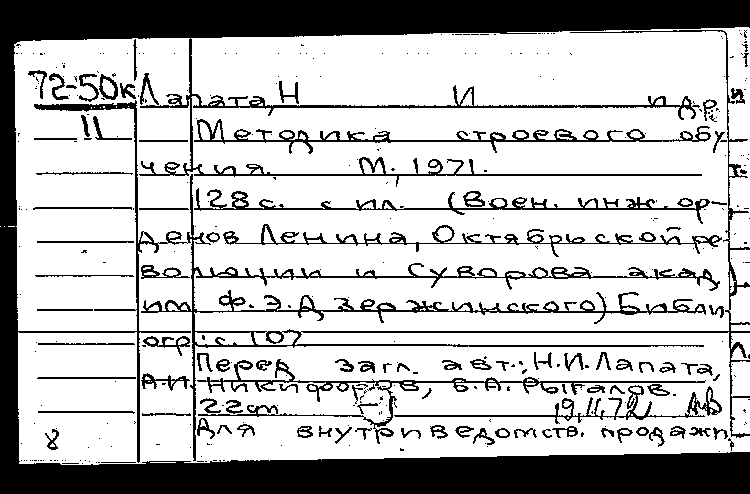 72-50к Лапата, Н И и др
11 Методика строевого обу
чения. М., 1971.
128 с. с ил. (Воен. инж. ор-
денов Ленина, Октябрьской ре-
волюции и Суворова акад
им. Ф.Э.Дзержинского) Библи
огр.: с. 107
Перед загл. авт.: Н.И.Лапата,
А.И. Никифоров, Б.А. Рыгалов.
22см 19.11.72
8 Для внутриведомств. продажи